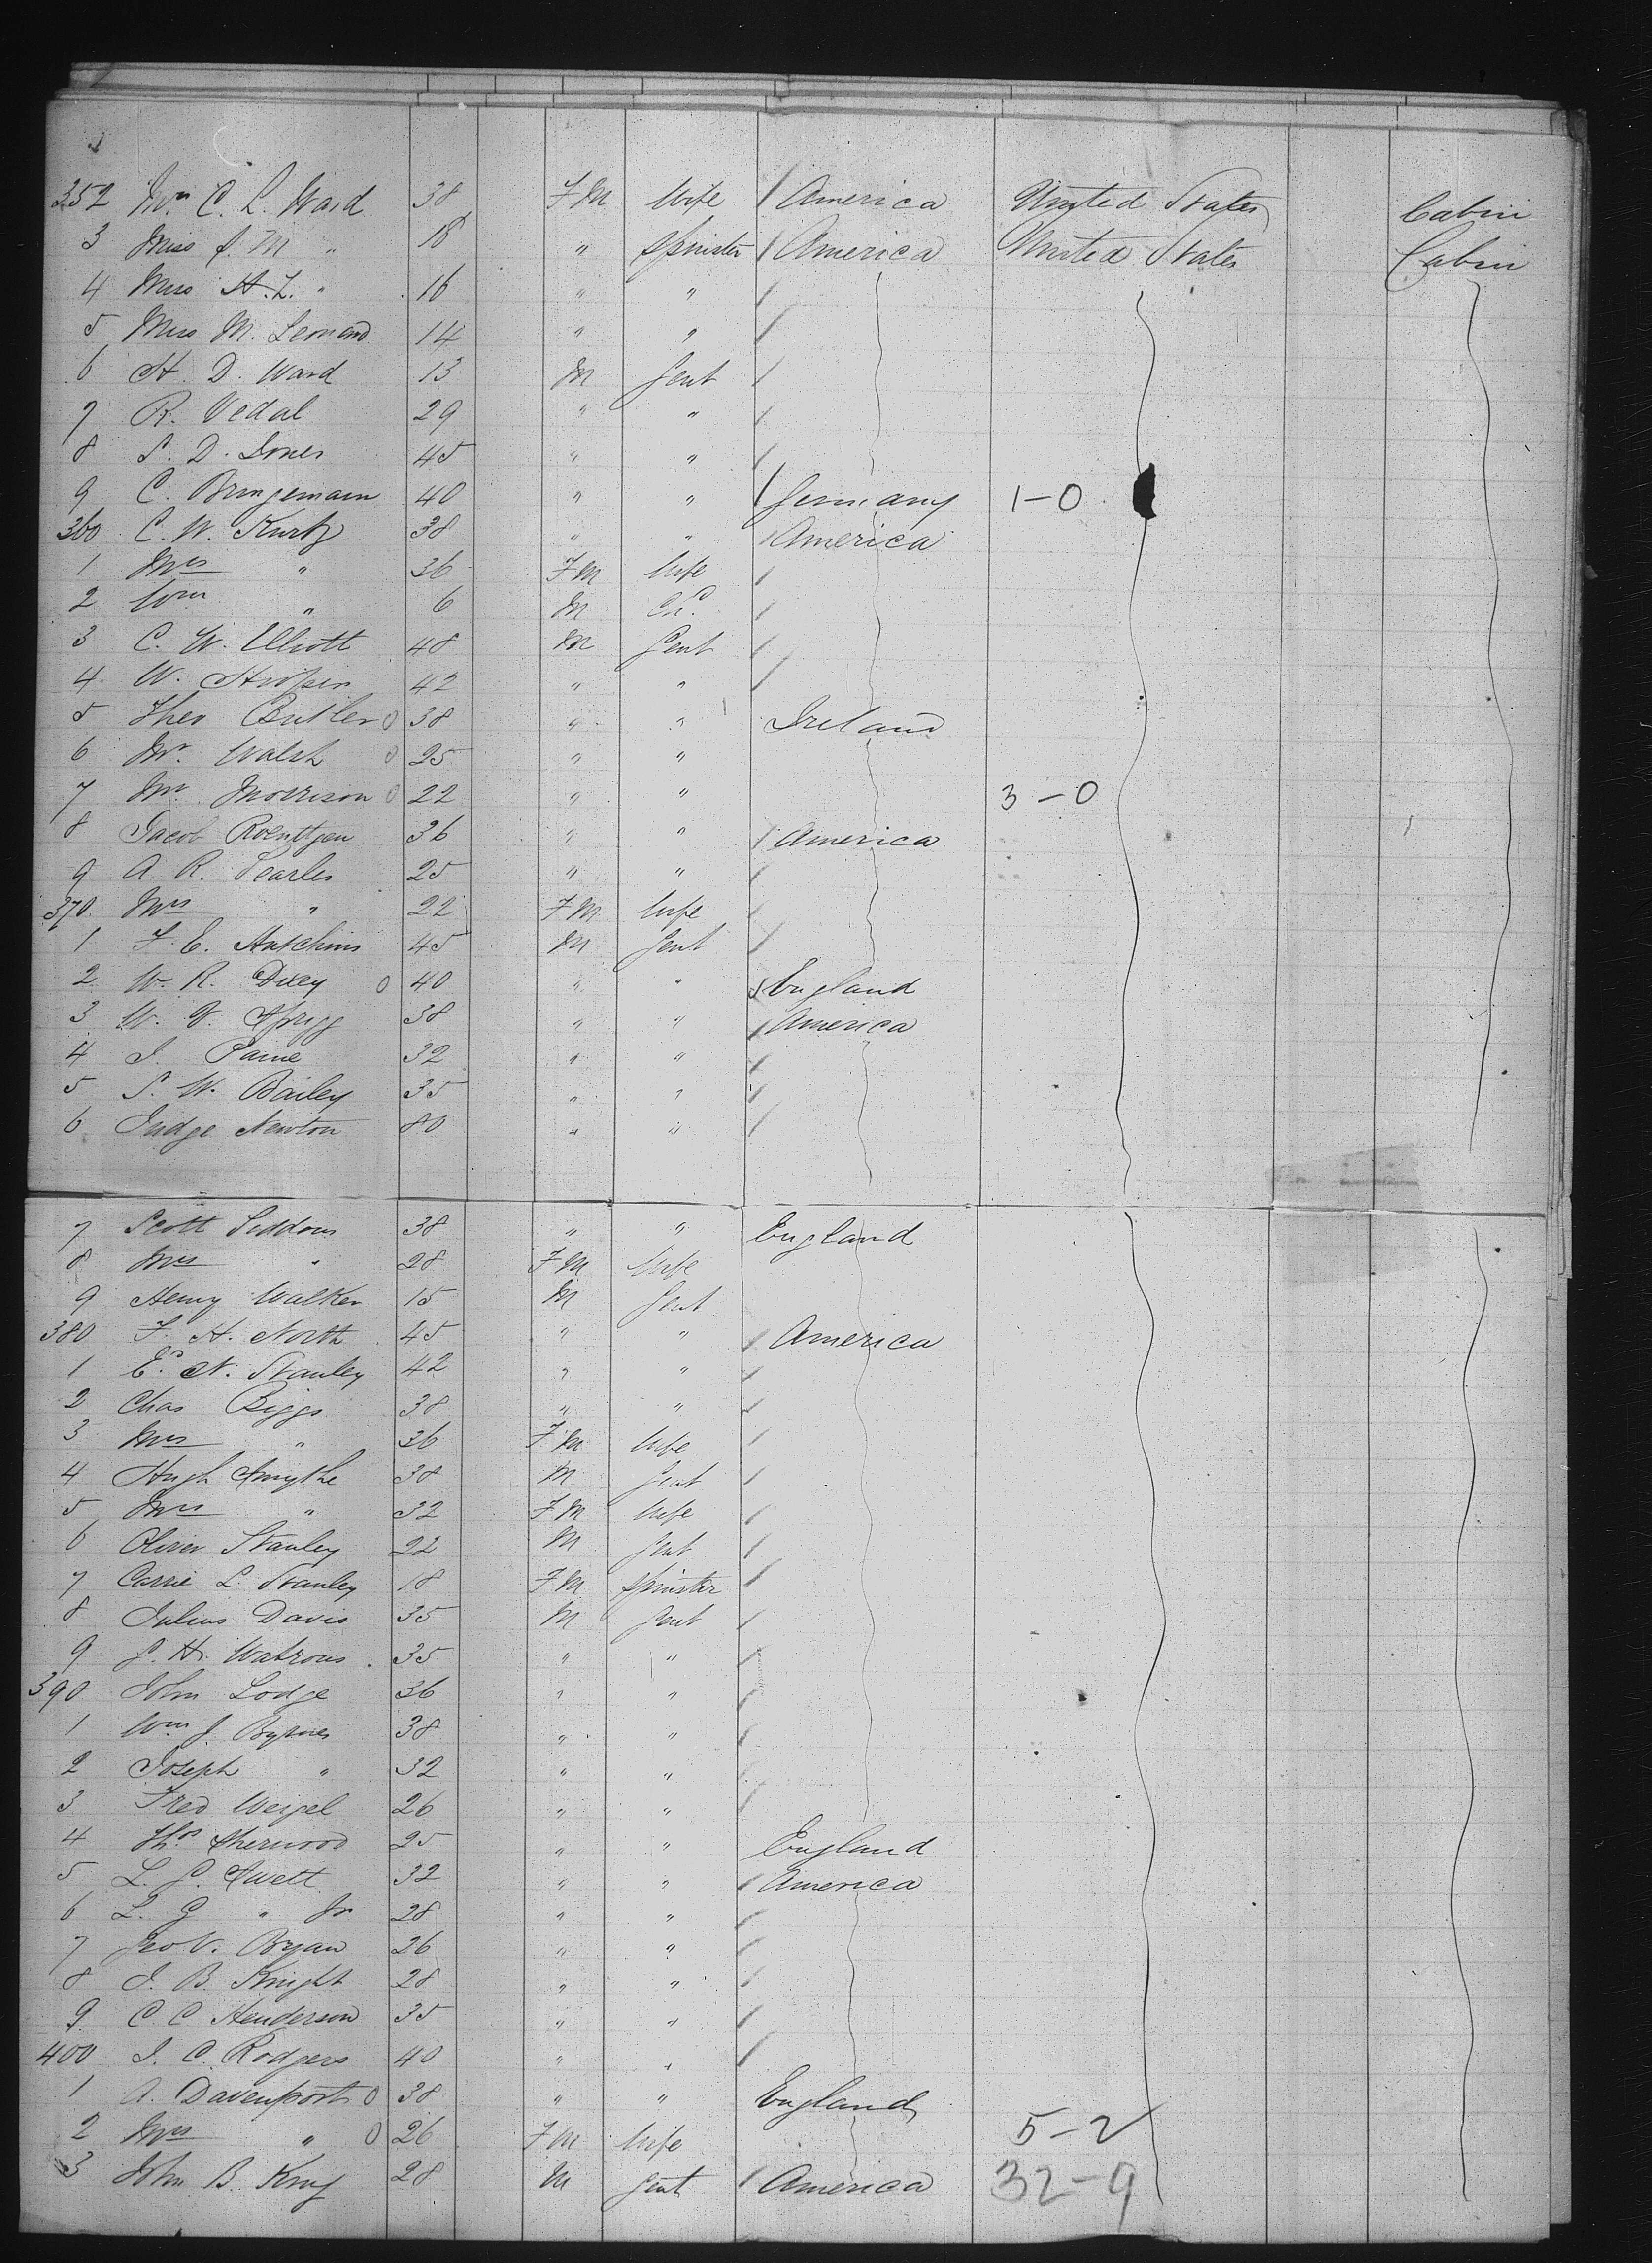 352 Mrs C. L. Ward 38 F M Wife America United States Cabin
3 Miss J. M " 18 " Spinster America United States Cabin
4 Miss H. L. " 16 " "
5 Miss M. Leonard 14 " "
6 H. D. Ward 13 M Gent
7 R. Vedal 29 " "
8 S. D. Jones 45 " "
9 C. Bringemann 40 " " Germany 1-0
360 C. W. Kurtz 38 " " America
1 Mrs " 36 F M Wife
2 Wm " 6 M Chd
3 C. W. Elliott 48 M Gent
4 W. 42 " "
5 Theo Butler 0 38 " " Ireland
6 Mr. Walsh 0 25 " "
7 Mr. Morrison 0 22 " " 3-0
8 Jacob Roenttgen 36 " " America
9 A R. Searles 25 " "
370 Mrs " 22 F M Wife
1 F. E. Hutchins 45 M Gent
2 W. R. Dixey 0 40 " " England
3 W. Y. Sprigg 38 " " America
4 J. Paine 32 " "
5 S. W. Bailey 35 " "
6 Judge Newton 80 " "
7 Scott Siddons 38 " " England
8 Mrs " 28 F M Wife
9 Henry Walker 15 M Gent
380 F. H. North 45 " " America
1 Ed. N. Stanley 42 " "
2 Chas Biggs 38 " "
3 Mrs " 36 F M Wife
4 Hugh Smythe 38 M Gent
5 Mrs " 32 F M Wife
6 Oliver Stanley 22 M Gent
7 Carrie L. Stanley 18 F M Spinster
8 Julius Davis 35 M Gent
9 J. H. Watrous 35 " "
390 John Lodge 36 " "
1 Wm J. Byrnes 38 " "
2 Joseph " 32 " "
3 Fred Weigel 26 " "
4 Thos Sherwood 25 " " England
5 L. G. Swett 32 " " America
6 L. G " Jr 28 " "
7 Geo V. Bryan 26 " "
8 J. B. Knight 28 " "
9 C. C Henderson 35 " "
400 J. C. Rodgers 40 " "
1 A. Davenport 0 38 " " England
2 Mrs " 0 26 F M Wife 5-2
3 John B. King 28 M Gent America 32-9